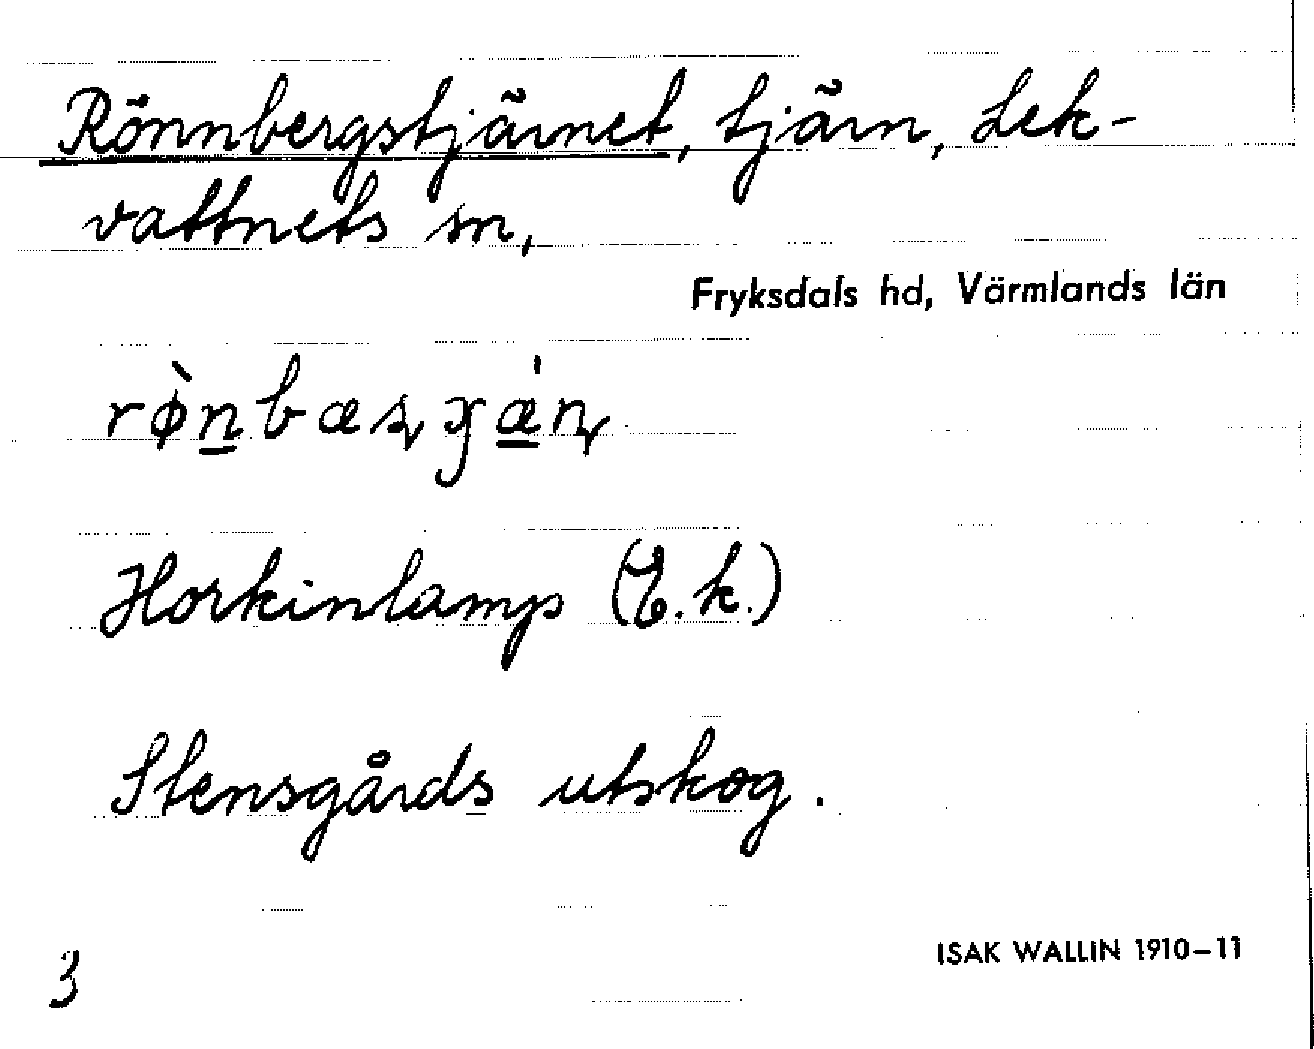 Rönnbergstjärnet, tjärn, Lek-
vattnets sn,
Fryksdals hd, Värmlands län
Horkinlamp (E.k.)
Stensgårds utskog.
3
ISAK WALLIN 1910–11